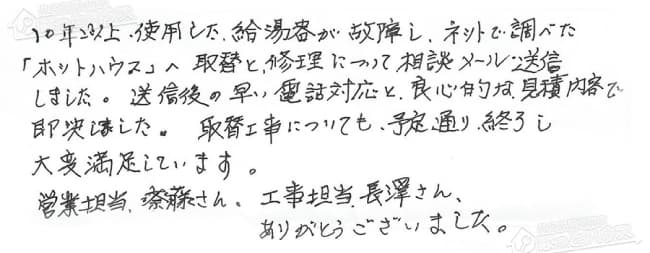 10年以上、使用した、給湯器が故障し、ネットで調べた
「ホットハウス」へ取替と、修理について相談メール送信
しました。送信後の早い電話対応と、良心的な見積内容で
即決しました。取替工事についても、予定通り、終了し
大変満足しています。
営業担当、齋藤さん。工事担当長澤さん、
ありがとうございました。